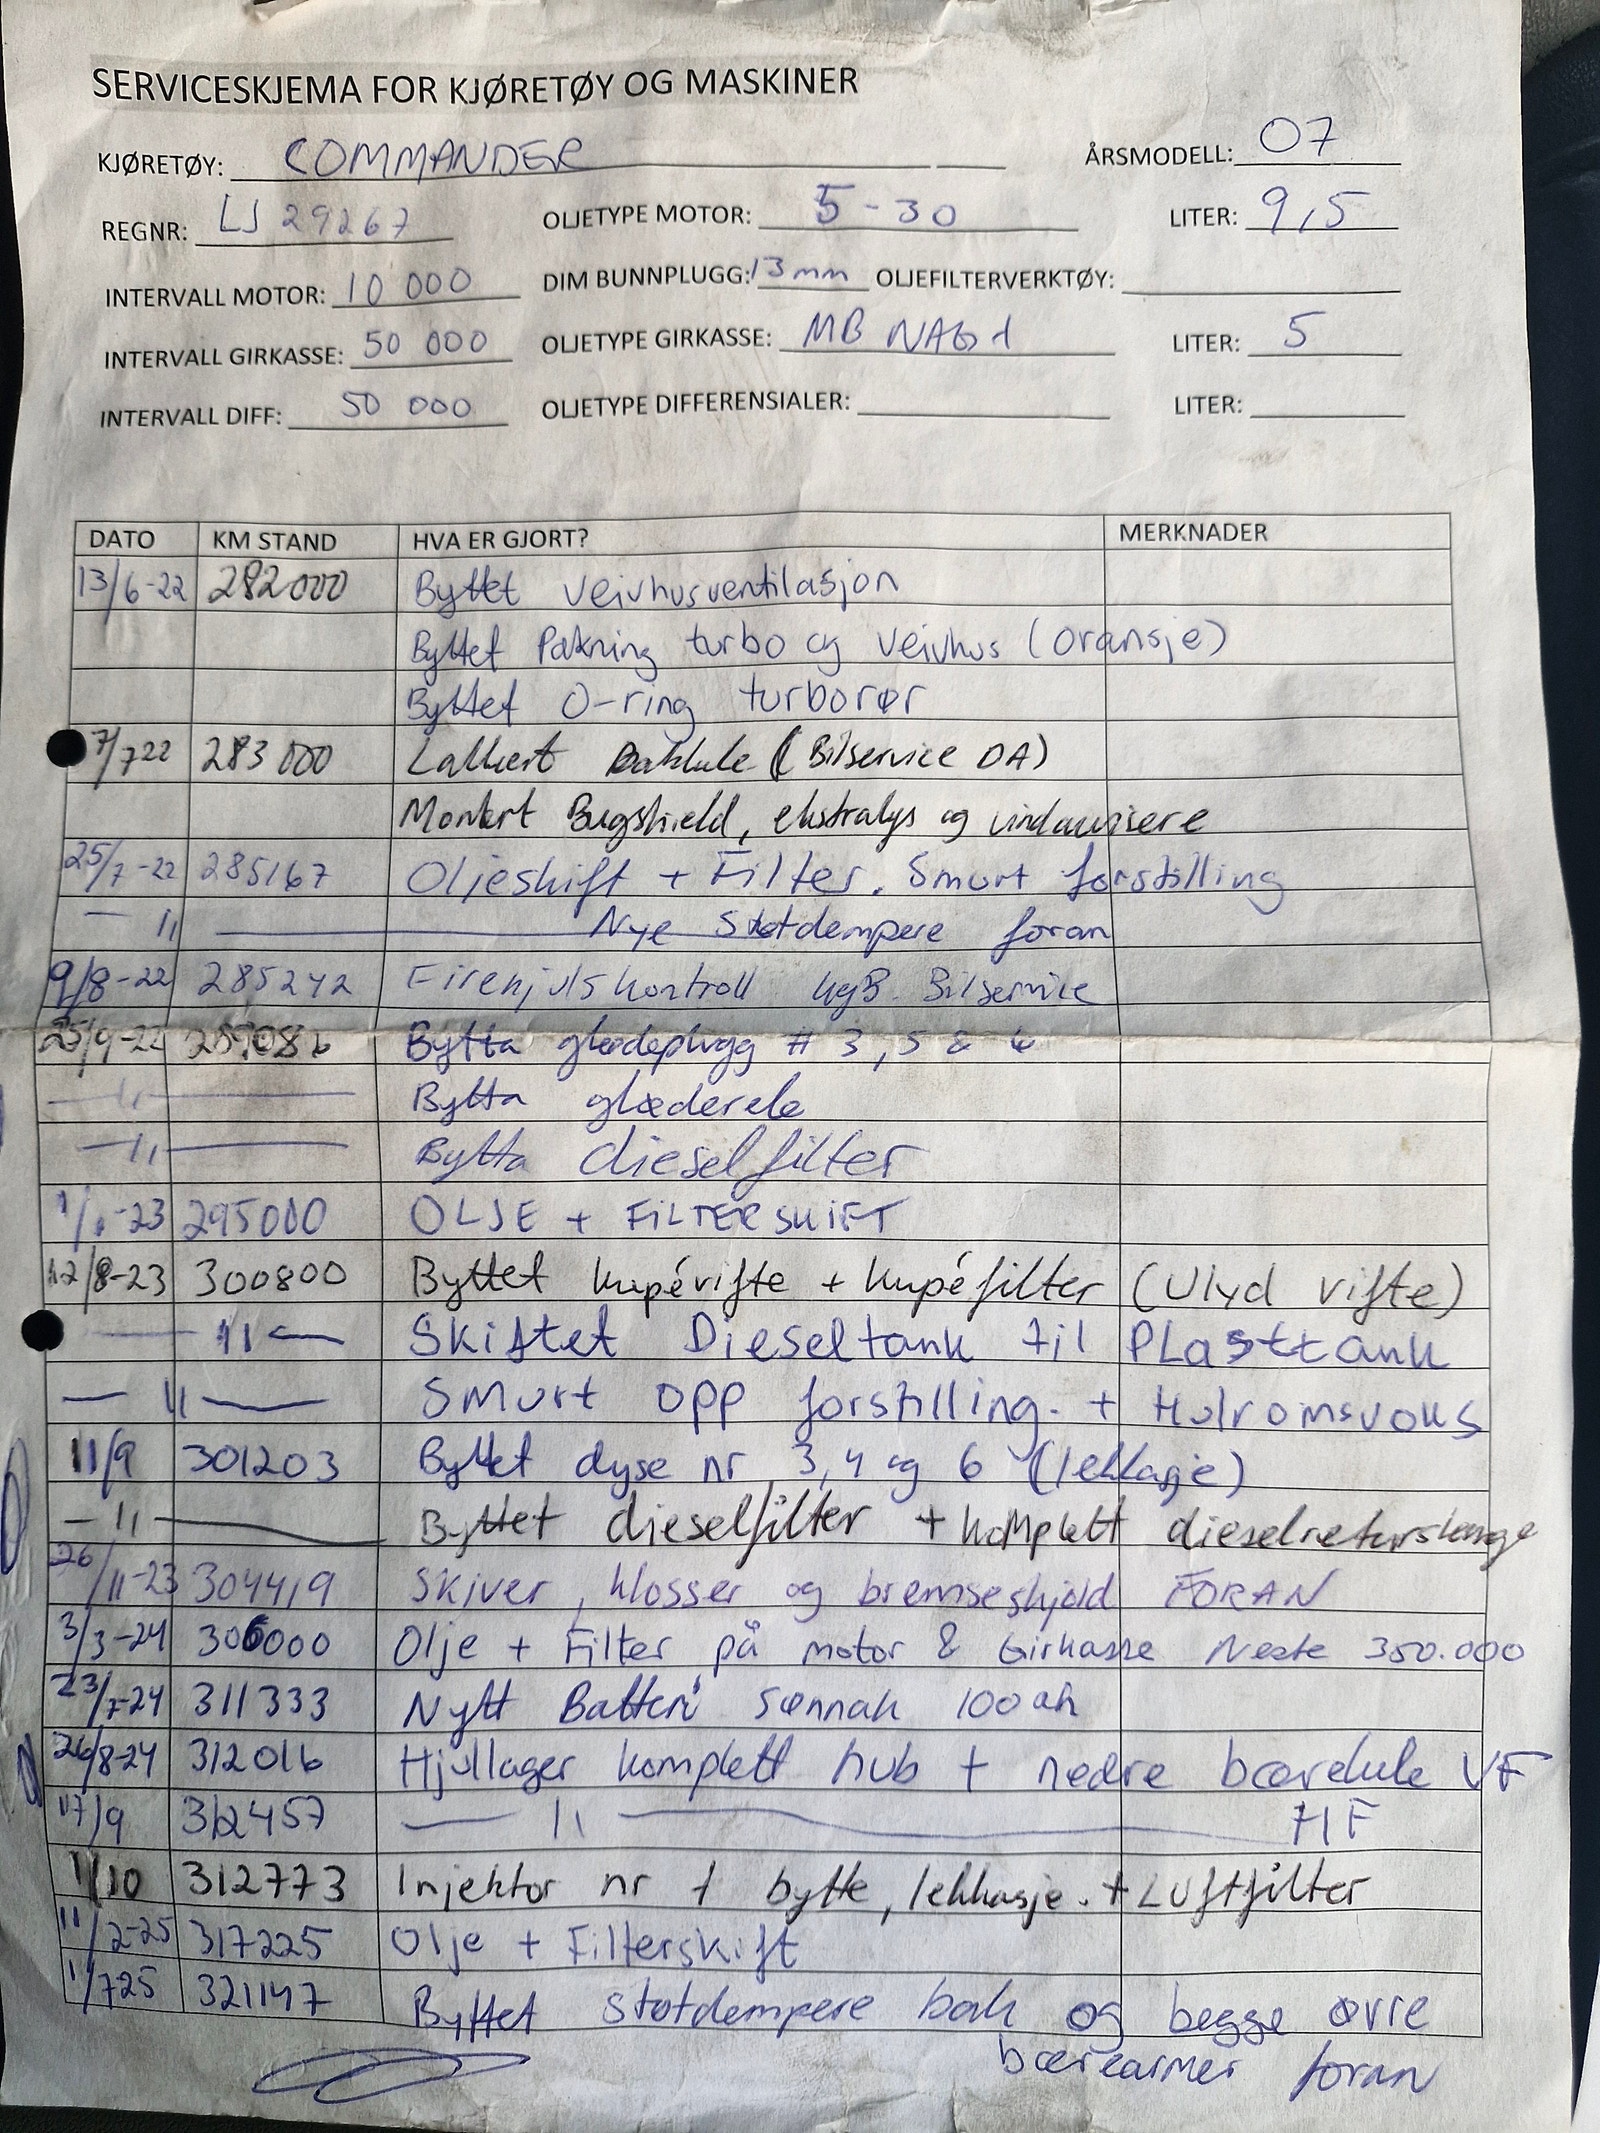 SERVICESKJEMA FOR KJØRETØY OG MASKINER
KJØRETØY: COMMANDER ÅRSMODELL: 07
REGNR: LJ 29267 OLJETYPE MOTOR: 5-30 LITER: 9,5
INTERVALL MOTOR: 10 000 DIM BUNNPLUGG: 13mm OLJEFILTERVERKTØY:
INTERVALL GIRKASSE: 50 000 OLJETYPE GIRKASSE: MB NAG1 LITER: 5
INTERVALL DIFF: 50 000 OLJETYPE DIFFERENSIALER: LITER:
DATO KM STAND HVA ER GJORT? MERKNADER
13/6-22 282000 Byttet veivhusventilasjon
Byttet Pakning turbo og veivhus (oransje)
Byttet O-ring turborør
7/7 22 283 000 Lakkert Bakluke (Bilservice DA)
Montert Bugshield, ekstralys og vindavvisere
25/7-22 285167 Oljeskift + Filter. Smurt forstilling
— 11 — Nye Støtdempere foran
9/8-22 285242 Firehjulskontroll hgB. Bilservice
25/9-22 Bytta glødeplugg # 3, 5 & 6
— 11 — Bytta gløderele
— 11 — Bytta dieselfilter
-23 295000 OLJE + FILTERSKIFT
12/8-23 300800 Byttet kupévifte + kupéfilter (Ulyd vifte)
— 11 — Skiftet Dieseltank til PLasttank
— 11 — SMurt opp forstilling. + Hulromsvoks
11/9 301203 Byttet dyse nr 3, 4 og 6 (lekkasje)
— 11 — Byttet dieselfilter + komplett dieselreturslange
26/11-23 304419 Skiver, klosser og bremseskjold FORAN
3/3-24 306000 Olje + Filter på motor & Girkasse Neste 350.000
23/7-24 311333 Nytt Batteri Sønnak 100ah
26/8-24 312016 Hjullager komplett hub + nedre bærekule VF
17/9 312457 — 11 — HF
1/10 312773 Injektor nr 1 bytte, lekkasje. + Luftfilter
11/2-25 317225 Olje + Filterskift
1/725 321147 Byttet støtdempere bak og begge øvre
bærearmer foran